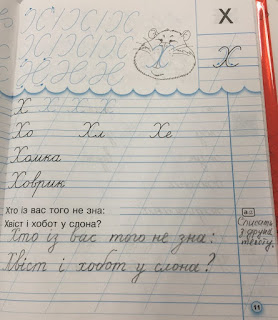 Х
Х
Х
Х Х Х Х
Хо Хл Хе
Хомка
Ховрик
Хто із вас того не зна:
Хвіст і хобот у слона?
Хто із вас того не зна:
Хвіст і хобот у слона?
Списать
з друк.
тексту.
11